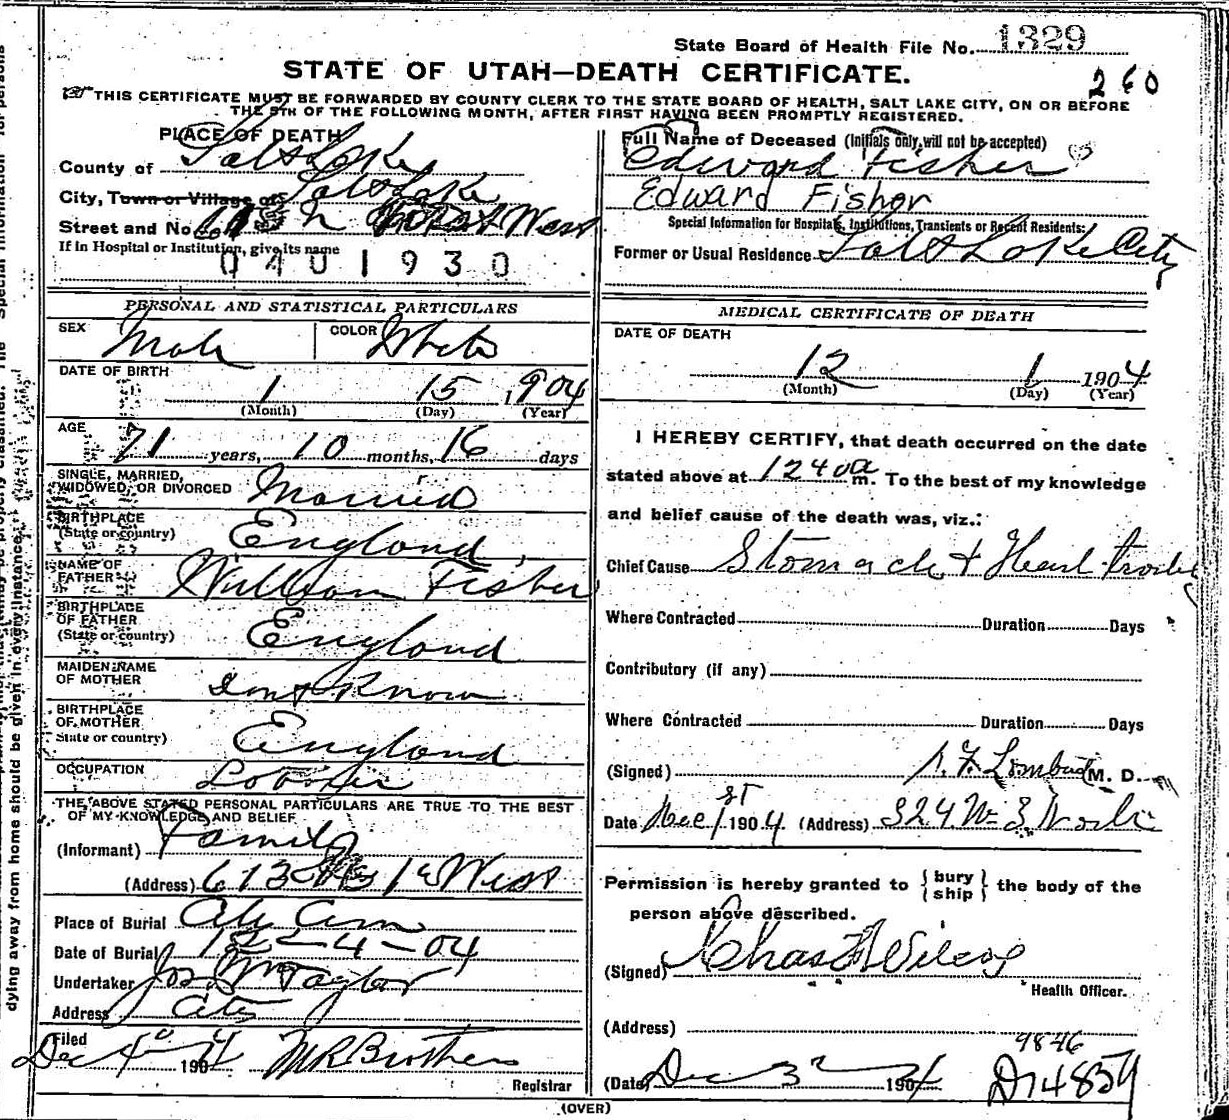 State Board of Health File No. 1329
STATE OF UTAH—DEATH CERTIFICATE.
260
THIS CERTIFICATE MUST BE FORWARDED BY COUNTY CLERK TO THE STATE BOARD OF HEALTH, SALT LAKE CITY, ON OR BEFORE
THE 5TH OF THE FOLLOWING MONTH, AFTER FIRST HAVING BEEN PROMPTLY REGISTERED.
PLACE OF DEATH
County of Salt Lake
City, Town or Village of Salt Lake
Street and No. West
If in Hospital or Institution, give its name
0401930
PERSONAL AND STATISTICAL PARTICULARS
SEX Male COLOR White
DATE OF BIRTH
1 15 1904
(Month) (Day) (Year)
AGE
71 years, 10 months, 16 days
SINGLE, MARRIED,
WIDOWED, OR DIVORCED Married
BIRTHPLACE
(State or country) England
NAME OF
FATHER William Fisher
BIRTHPLACE
OF FATHER
(State or country) England
MAIDEN NAME
OF MOTHER Dont Know
BIRTHPLACE
OF MOTHER
State or country) England
OCCUPATION
THE ABOVE STATED PERSONAL PARTICULARS ARE TRUE TO THE BEST
OF MY KNOWLEDGE AND BELIEF
(Informant) Family
(Address) 613 West
Place of Burial City Cem
Date of Burial 12-4-04
Undertaker Jos Taylor
Address City
Filed
Dec 4 1904 M R Brothers
Registrar
(OVER)
Full Name of Deceased (Initials only will not be accepted)
Edward Fisher
Edward Fisher
Special Information for Hospitals, Institutions, Transients or Recent Residents:
Former or Usual Residence Salt Lake City
MEDICAL CERTIFICATE OF DEATH
DATE OF DEATH
12 1 1904
(Month) (Day) (Year)
I HEREBY CERTIFY, that death occurred on the date
stated above at 1240 a m. To the best of my knowledge
and belief cause of the death was, viz.:
Chief Cause Stomach & Heart trouble
Where Contracted Duration Days
Contributory (if any)
Where Contracted Duration Days
(Signed) M. D.
Date Dec 1st 1904. (Address) 324 W
Permission is hereby granted to { bury
ship } the body of the
person above described.
(Signed) Chas Wilcox
Health Officer.
(Address)
9846
(Date) Dec 3 1904 D14859
dying away from home should be given in every instance.